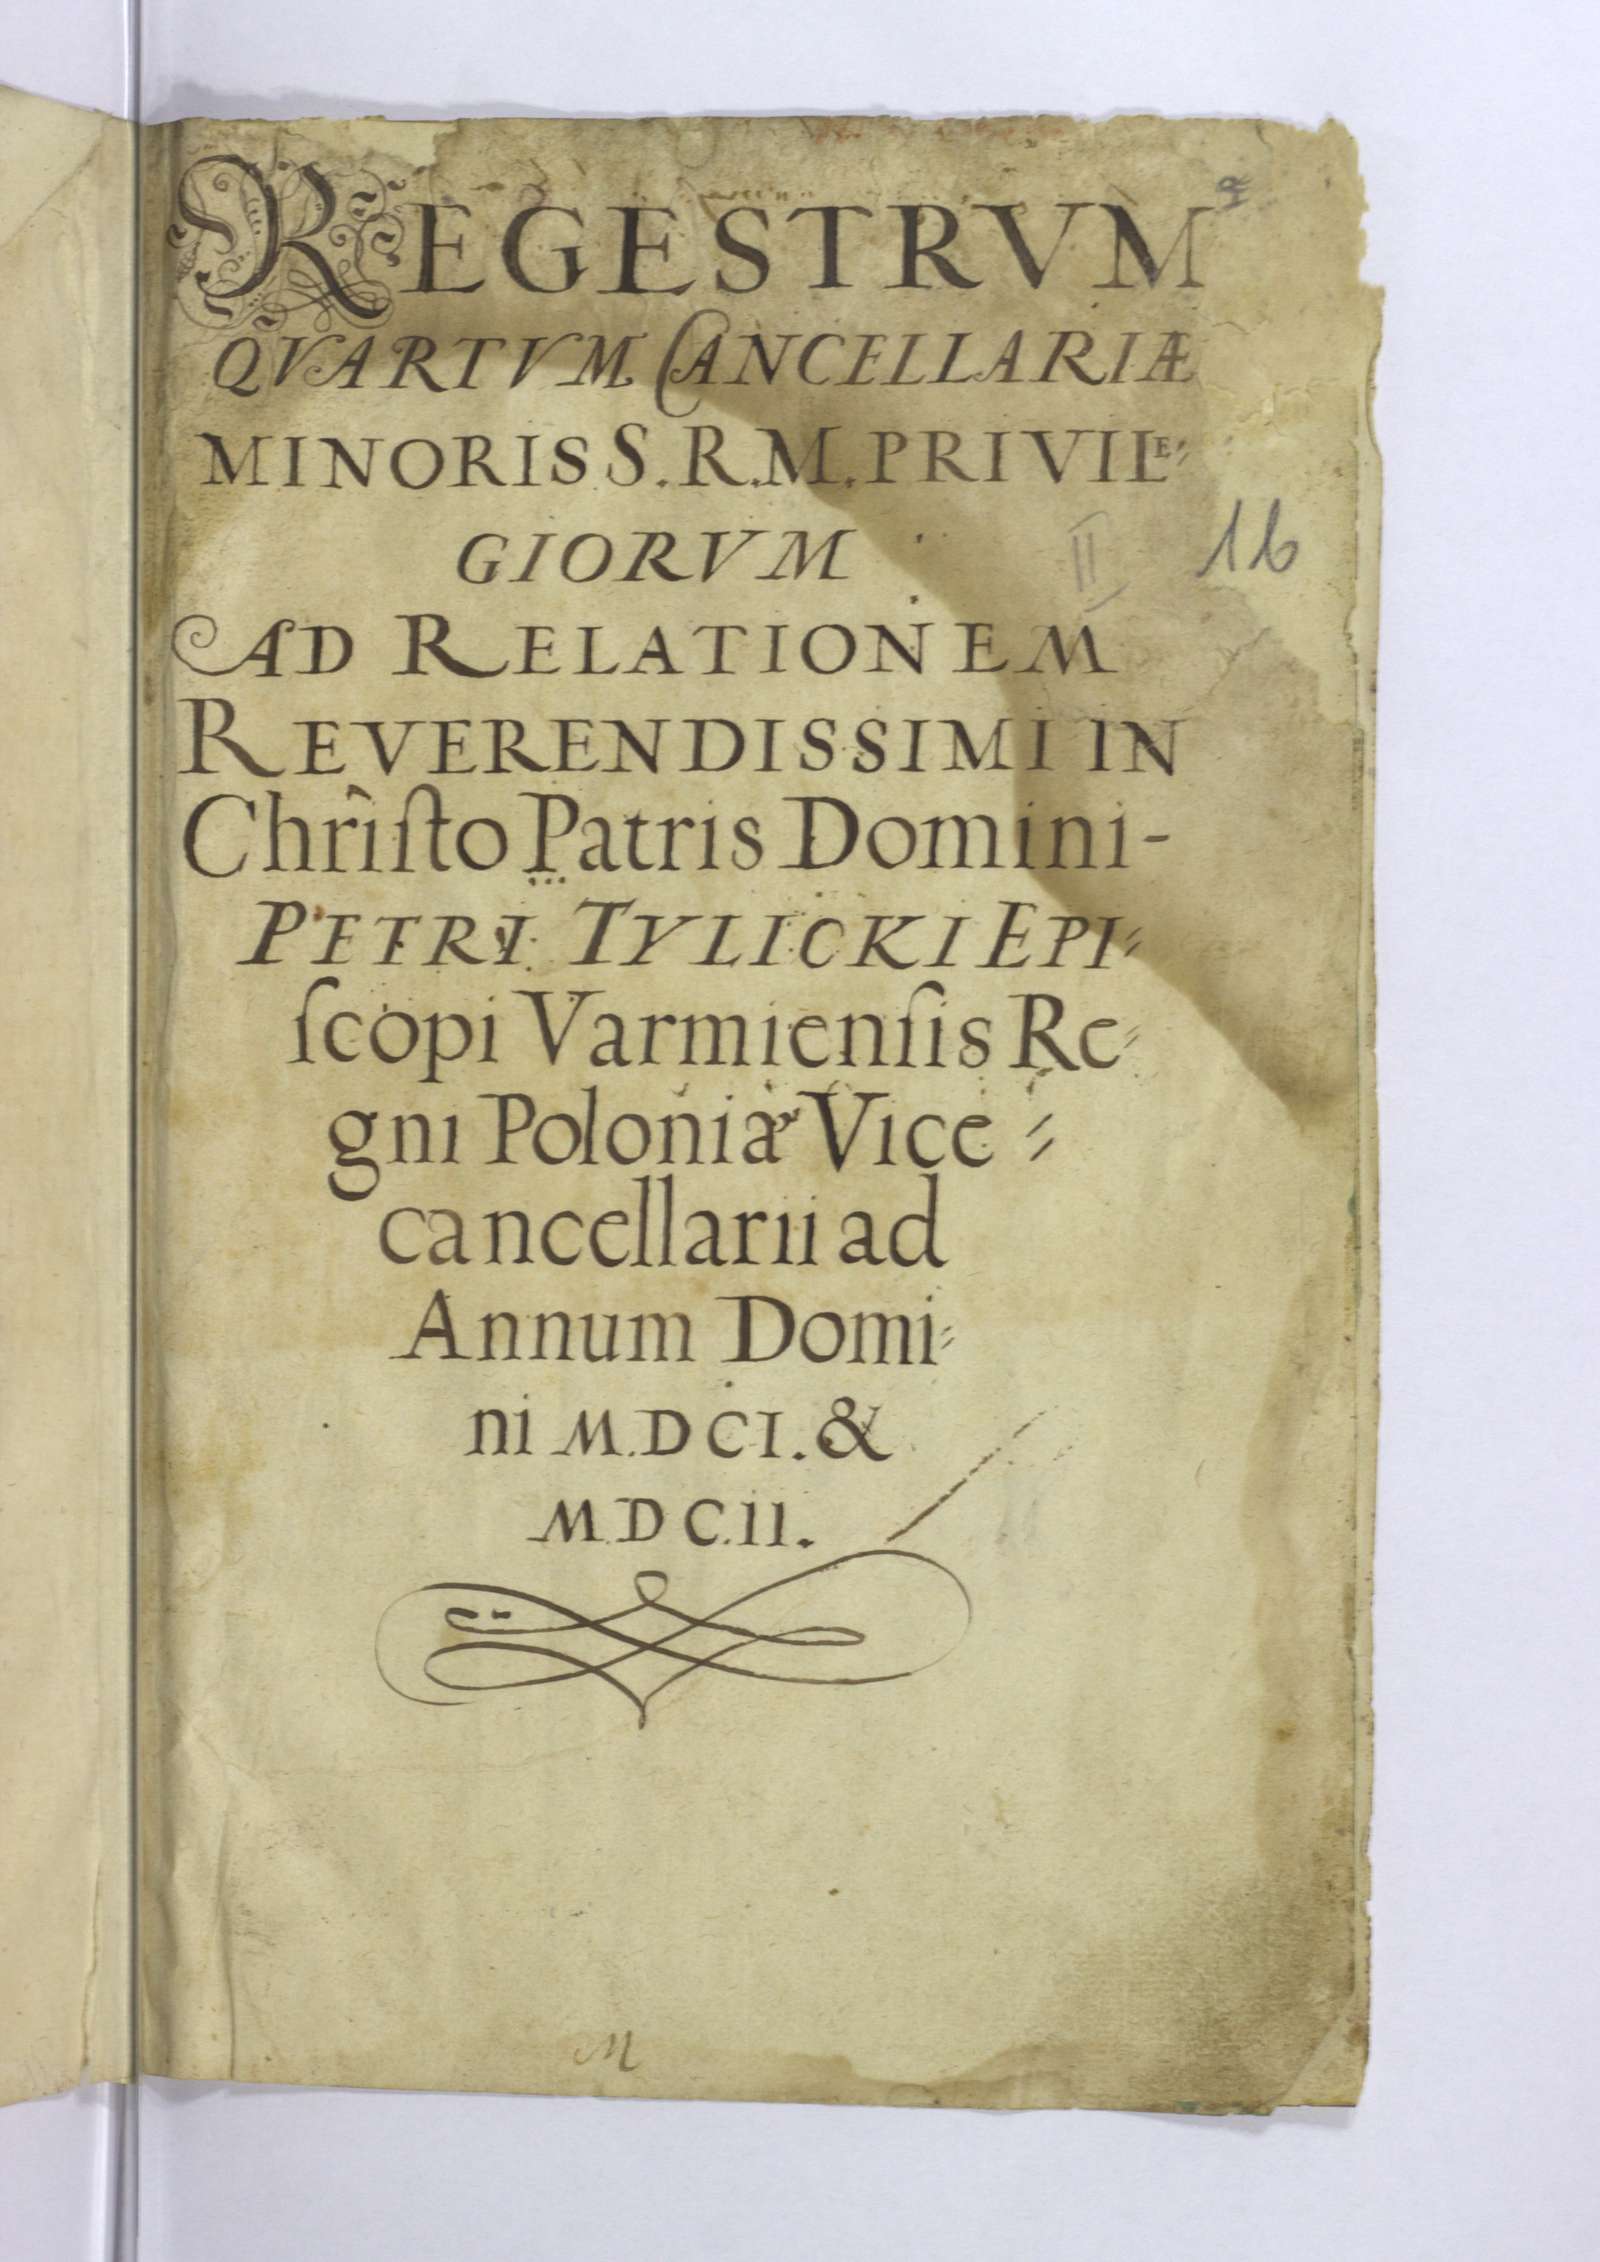 REGESTRVM
QVARTVM CANCELLARIÆ
MINORIS S.R.M. PRIVILE=
GIORVM
II
16
AD RELATIONEM
REVERENDISSIMI IN
Chriſto Patris Domini-
PETRI TYLICKI EPI=
ſcopi Varmienſis Re=
gni Poloniæ Vice=
cancellarii ad
Annum Domi=
ni M.DCI. &
M.DC.II.
M